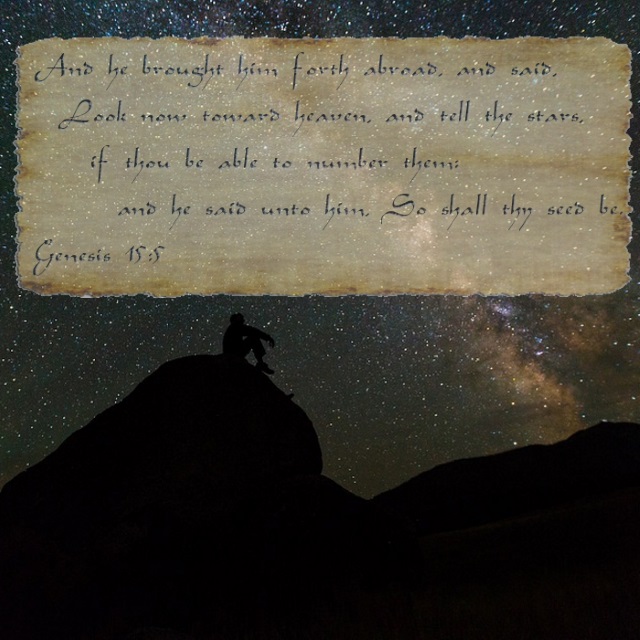 And he brought him forth abroad, and said,
Look now toward heaven, and tell the stars,
if thou be able to number them:
and he said unto him, So shall thy seed be.
Genesis 15:5